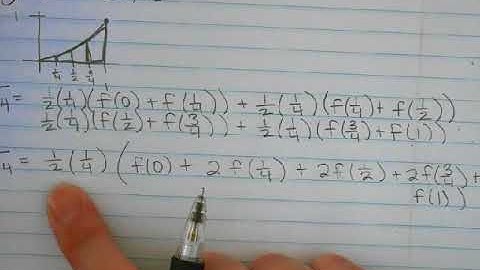 1
1/4 1/2 3/4
T4 = 1/2(1/4)(f(0) + f(1/4)) + 1/2(1/4)(f(1/4) + f(1/2))
1/2(1/4)(f(1/2) + f(3/4)) + 1/2(1/4)(f(3/4) + f(1))
T4 = 1/2(1/4)(f(0) + 2f(1/4) + 2f(1/2) + 2f(3/4) +
f(1))